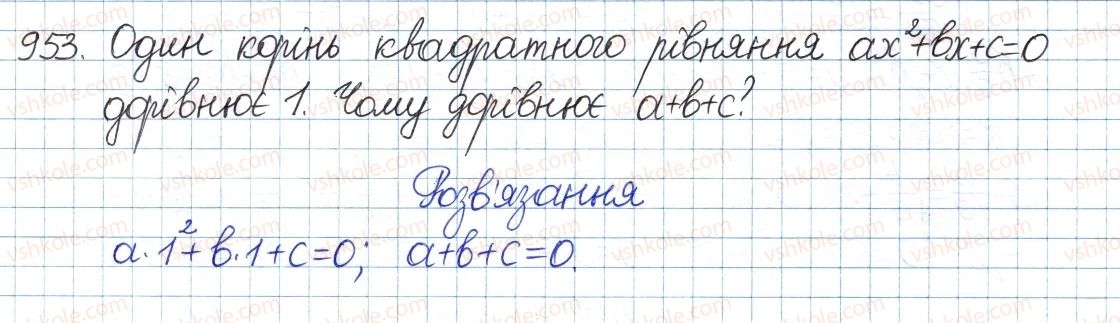 953. Один корінь квадратного рівняння ax²+bx+c=0
дорівнює 1. Чому дорівнює a+b+c?
Розв'язання
a·1²+b·1+c=0; a+b+c=0.